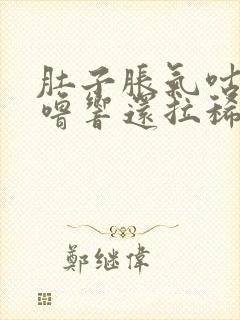 肚子脹氣咕
嚕響還拉稀
鄭继偉